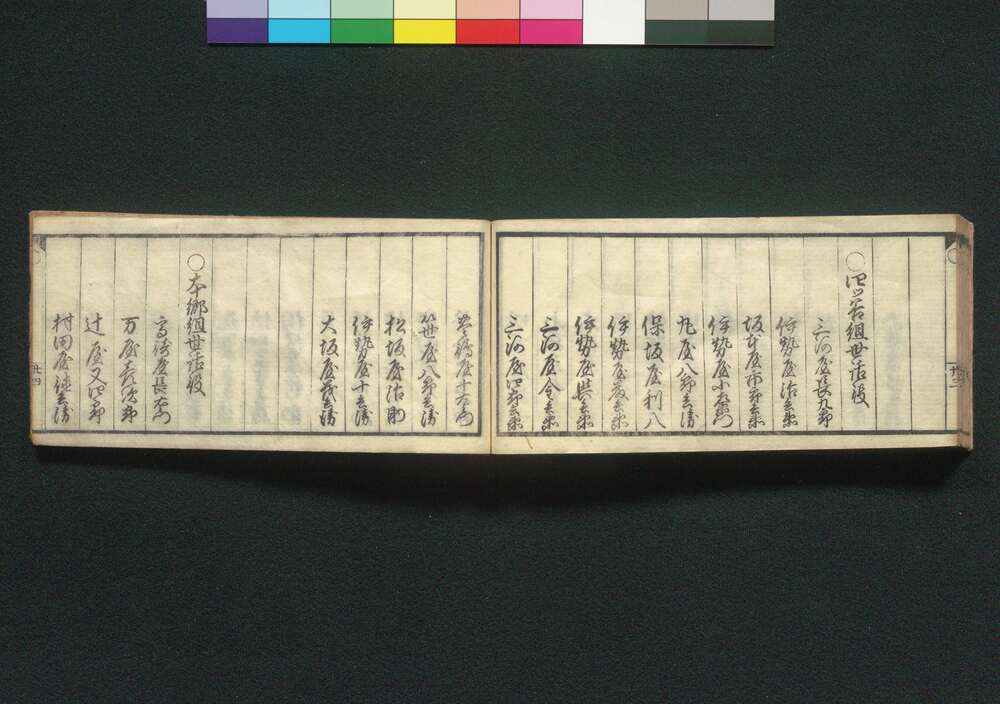 〇四ツ谷組世話役
三河屋長九郎
伊勢屋治兵衛
坂本屋市郎兵衛
伊勢屋小左衛門
丸屋八郎兵衛
保坂屋利八
伊勢屋嘉兵衛
伊勢屋與兵衛
三河屋金兵衛
三河屋四郎兵衛
屋十右衛門
笹屋八郎兵衛
松坂屋治助
伊勢屋十兵衛
大坂屋茂兵衛
〇本郷組世話役
高崎屋長右衛門
万屋喜次郎
辻屋又四郎
村田屋徳兵衛
廿四